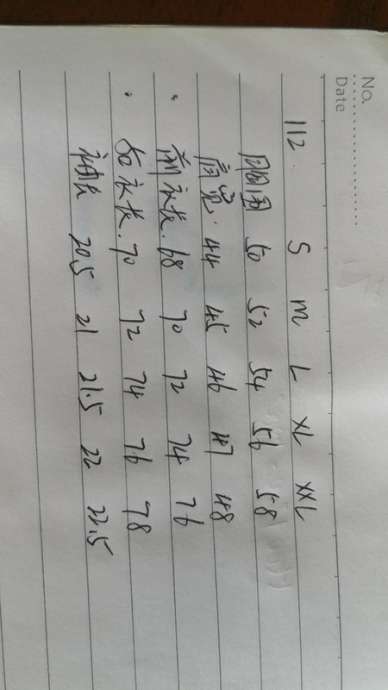 No.
Date
112. S M L XL XXL
胸围 50 52 54 56 58
肩宽. 44 45 46 47 48
前衣长. 68 70 72 74 76
后衣长. 70 72 74 76 78
袖长 20.5 21 21.5 22 22.5